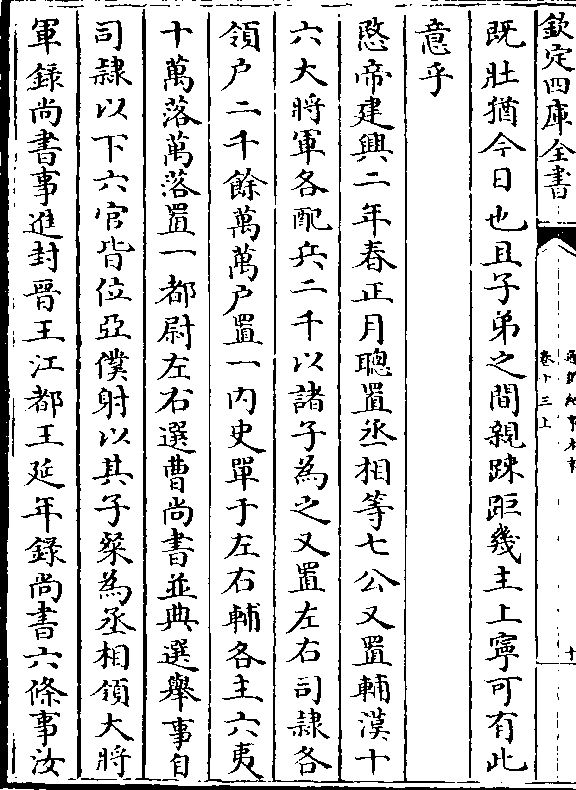 欽定四庫全書
通鑑紀事本末
卷十三上
十
既壯猶今日也且子弟之間親踈距幾主上寧可有此
意乎
愍帝建興二年春正月聰置丞相等七公又置輔漢十
六大將軍各配兵二千以諸子為之又置左右司隸各
領户二十餘萬萬户置一内史單于左右輔各主六夷
十萬落萬落置一都尉左右選曹尚書並典選舉事自
司隸以下六官皆位亞僕射以其子粲為丞相領大將
軍錄尚書事進封晉王江都王延年錄尚書六條事汝